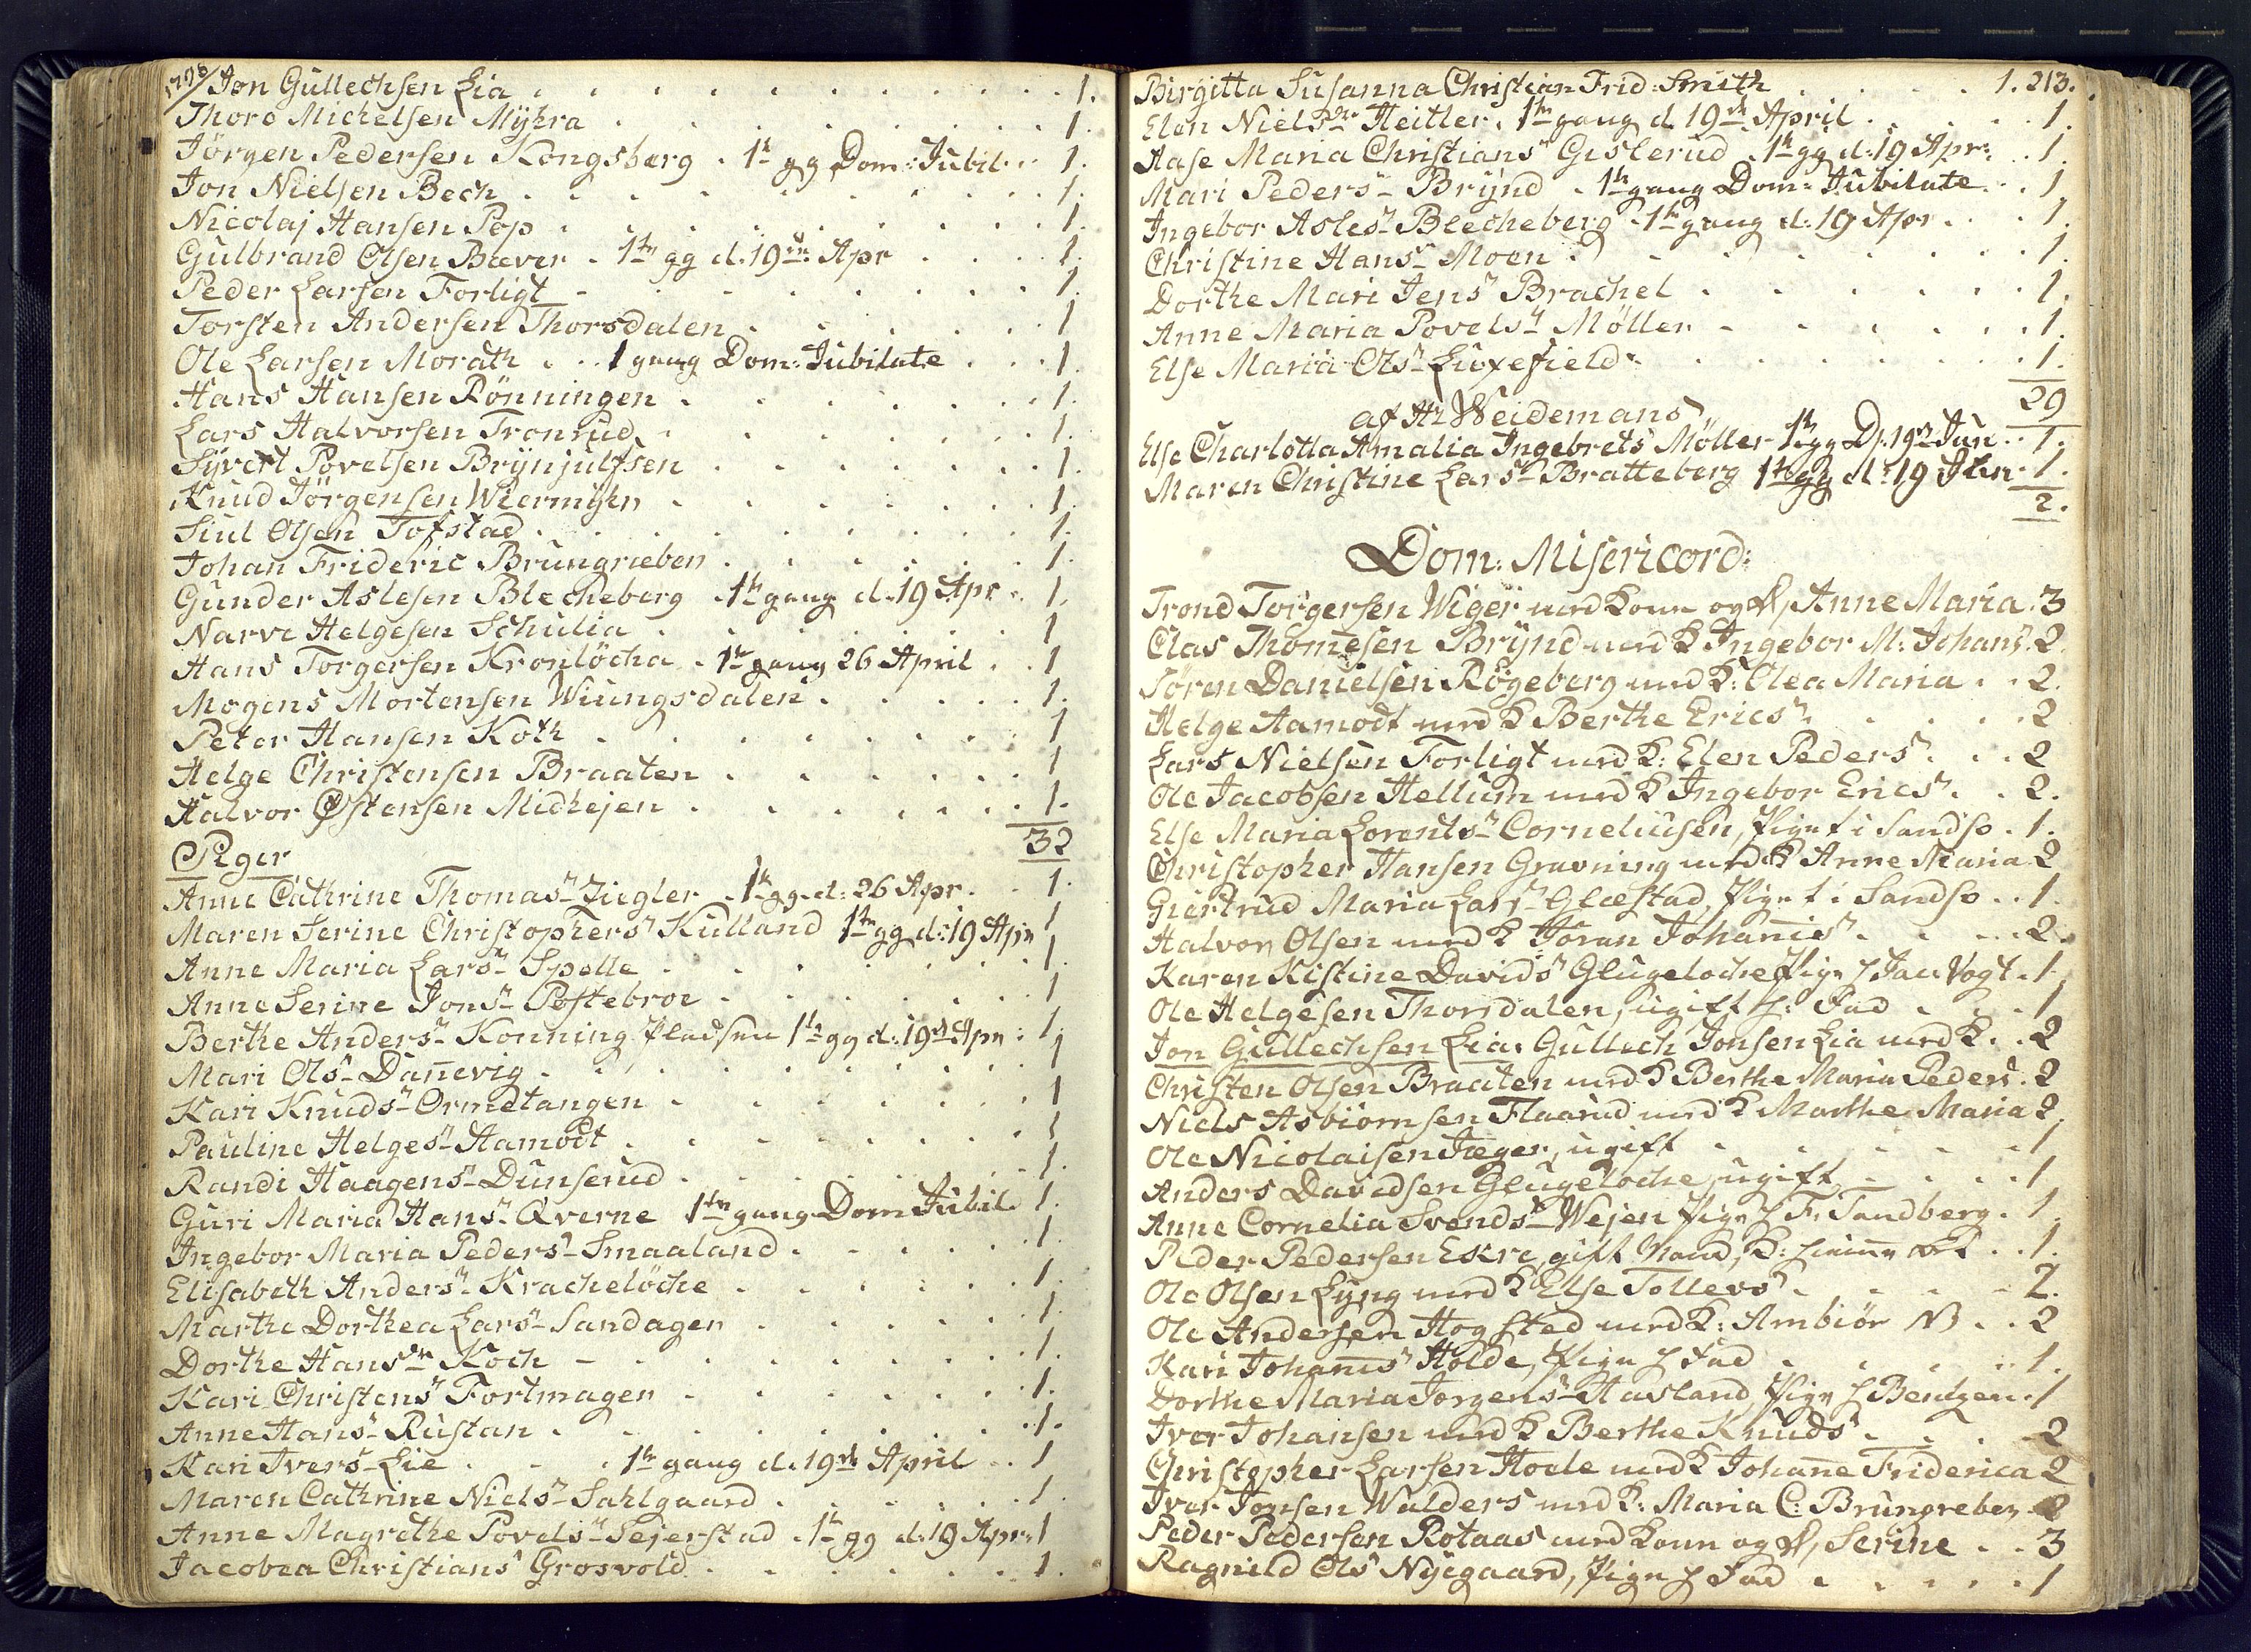 1795/ Jon Gullechsen Lia . . . 1.
Thore Michelsen Myhra . . . 1.
Jörgen Pedersen Kongsberg . 1te gg Dom: Jubil . . 1.
Jon Nielsen Bech . . . 1.
Nicolaj Hansen Pop . . . 1.
Gulbrand Olsen Bæver . 1te gg d: 19de Apr . . . 1.
Peder Larsen Forligt . . . 1.
Torsten Andersen Thorsdalen . . . 1
Ole Larsen Morath . . 1 gang Dom: Jubilate . . . 1.
Hans Hansen Rönningen . . . 1.
Lars Halvorsen Tronrud . . . 1.
Syvert Povelsen Brynjulfsen . . . 1.
Knud Jörgensen Wiermyhr . . . 1.
Siul Olsen Tofstad . . . 1.
Johan Frideric Brungræben . . . 1.
Gunder Aslesen Blecheberg . 1te gang d. 19 Apr . 1.
Narve Helgesen Schulia . . . 1
Hans Torgersen Kronlöcha . 1te gang 26 April . . 1
Mogens Mortensen Wiungsdalen . . . 1.
Peter Hansen Koth . . . 1
Helge Christensen Braaten . . . 1
Halvor Østensen Midhejen . . . 1.
32
Piger
Anne Cathrine Thomasdr Ziegler . 1te gg. d: 26 Apr . . 1.
Maren Serine Christophersdr Kulland 1te gg d: 19 Apr 1
Anne Maria Larsdr Spelle . . . 1.
Anne Serine Jonsdr Postebroe . . . 1
Berthe Andersdr Konning Pladsen 1te gg d: 19de Apr : 1.
Mari Olsdr Danevig . . . 1
Kari Knudsdr Ormetangen . . . 1
Pauline Helgesdr Aamodt . . . 1
Randi Haagensdr Dunserud . . . 1.
Guri Maria Hansdr Qverne 1te gang Dom Jubil 1.
Ingebor Maria Pedersdr Smaaland . . . 1.
Elisabeth Andersdr Krachelöche . . . 1.
Marthe Dorthea Larsdr Sandager . . . 1.
Dorthe Hansdr Koch . . . 1.
Kari Christensdr Fortmager . . . 1.
Anne Hansdr Rustan . . . 1.
Kari Iversdr Lie . . . 1te gang d. 19de April . . 1
Maren Cathrine Nielsdr Sahlgaard . . . 1.
Anne Magrethe Povelsdr Sejerstad . 1te gg d: 19 Apr: 1
Jacobea Christiansdr Grosvold . . . 1.
Birgitta Susanna Christian Frid: Smith . . . 1. 213.
Elen Nielsdr Heitler . 1te gang d 19de April . . . 1.
Aase Maria Christiansdr Gislerud . 1te gg d: 19 Apr: . . 1.
Mari Pedersdr Brynd . 1te gang Dom: Jubilate . . 1
Ingebor Aslesdr Blecheberg . 1te gang d: 19 Apr . . . 1.
Christine Hansdr Moen . . . 1.
Dorthe Mari Jensdr Brachel . . . 1.
Anne Maria Povelsdr Möller . . . 1.
Else Maria Olsdr Luxefield . . . 1.
29
af Hr Weidemans
Else Charlotta Amalia Ingebretsdr Möller 1te gg D: 19de Jun . . 1.
Maren Christine Larsdr Bratteberg 1te gg d: 19 Jun . 1.
2.
Dom: Misericord:
Trond Torgersen Wiger med Kone og D, Anne Maria . 3
Clas Thomesen Brynd med K Ingebor M: Johansdr 2.
Sören Danielsen Rögeberg med K: Olea Maria . . 2.
Helge Aamodt med K Berthe Ericsdr . . . 2
Lars Nielsen Forligt med K: Elen Pedersdr . . 2
Ole Jacobsen Hellum med K Ingebor Ericsdr . . 2.
Else Maria Lorentsdr Corneliusen, Pige f i Sandsø . 1.
Christopher Hansen Gravning med K Anne Maria 2
Giertrud Maria Larsdr Glæstad, Pige f i Sandsø . . 1.
Halvor Olsen med K Jöran Johannisdr . . . 2.
Karen Kistine Davidsdr Glugeloche Pige h Jac: Vogt . 1.
Ole Helgesen Thorsdalen, ugift h: Fad . . . 1
Jon Gullechsen Lia. Gullech Jonsen Lia med K . . 2
Christen Olsen Braaten med K Berthe Maria Pedersdr . 2
Niels Asbiörnsen Flaarud med K Marthe Maria 2.
Ole Nicolaisen Jæger, ugift . . . 1
Anders Davidsen Glugeloche ugift . . . 1
Anne Cornelia Svendsdr Wejen Pige h F. Sandberg . 1
Peder Pedersen Eskre, gift Mand, K: . . 1.
Ole Olsen Lyng med K Else Tollevsdr . . . 2.
Ole Andersen Hogsted med K: Ambiör N3 . . 2
Kari Johannisdr Holde, Pige h Fad . . . 1.
Dorthe Maria Jorgensdr Havland, Pige h Bentzen . 1
Iver Johansen med K Berthe Knudsdr . . . 2
Christopher Larsen Hoele med K Johanne Friderica 2
Iver Jonsen Walders med K: Maria C: Brungreben . 2
Peder Pedersen Rotaas med Kone og D, Serine . . 3
Ragnild Olsdr Nyegaard, Pige h Fad . . . 1